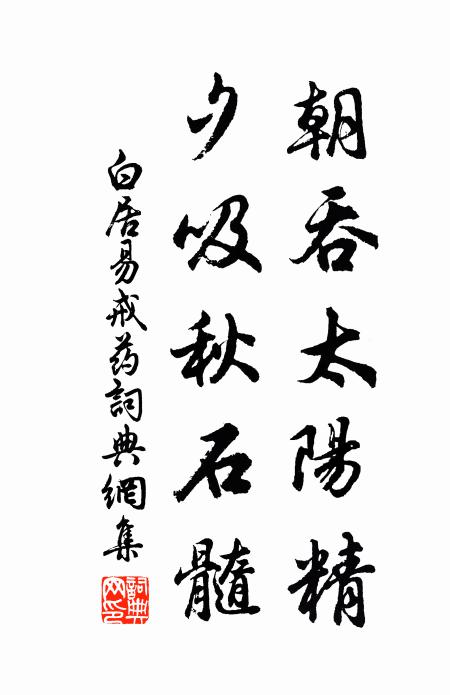 朝吞太陽精
夕吸秋石髓
白居易戒药詞典網集
詞典網印